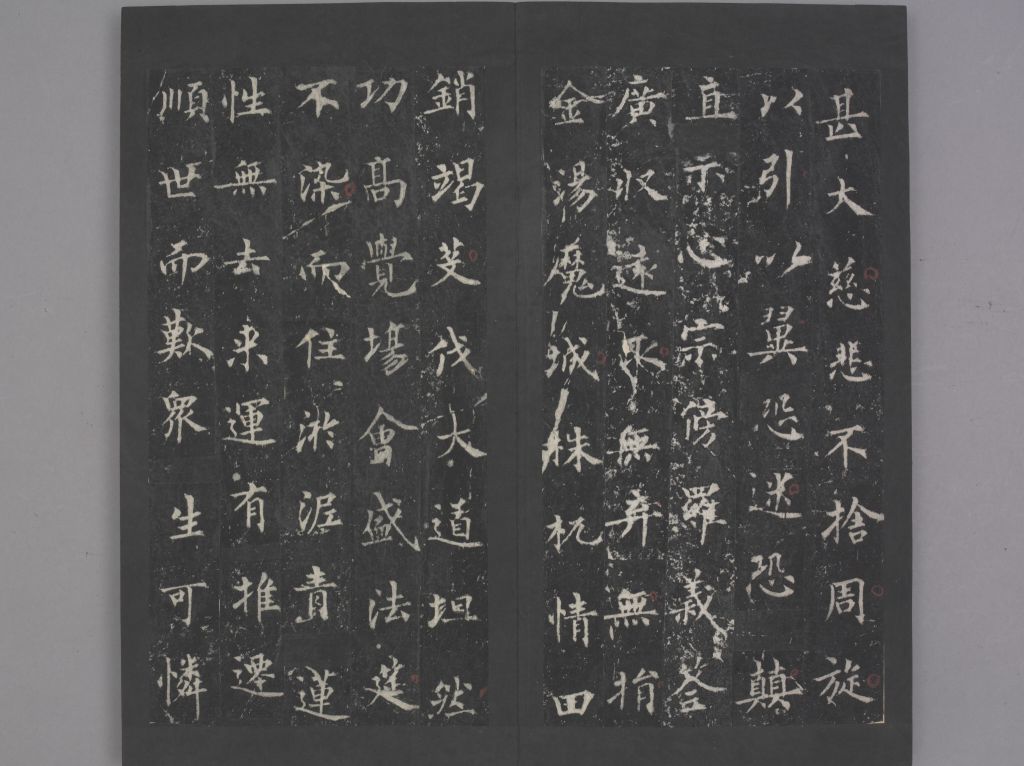 甚大慈悲不捨周旋
以引以翼恐迷恐顛
直示心宗傍羅義筌
廣收遠無弃無捐
金湯魔城株杌情田
銷竭芟伐大道坦然
功高覺場會盛法筵
不染而住淤泥青蓮
性無去来運有推遷
順世而歎衆生可憐